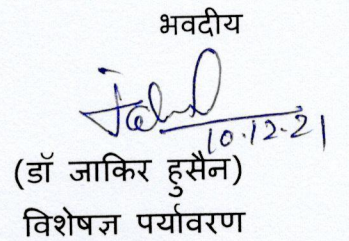 भवदीय
10.12.21
(डॉ जाकिर हुसैन)
विशेषज्ञ पर्यावरण